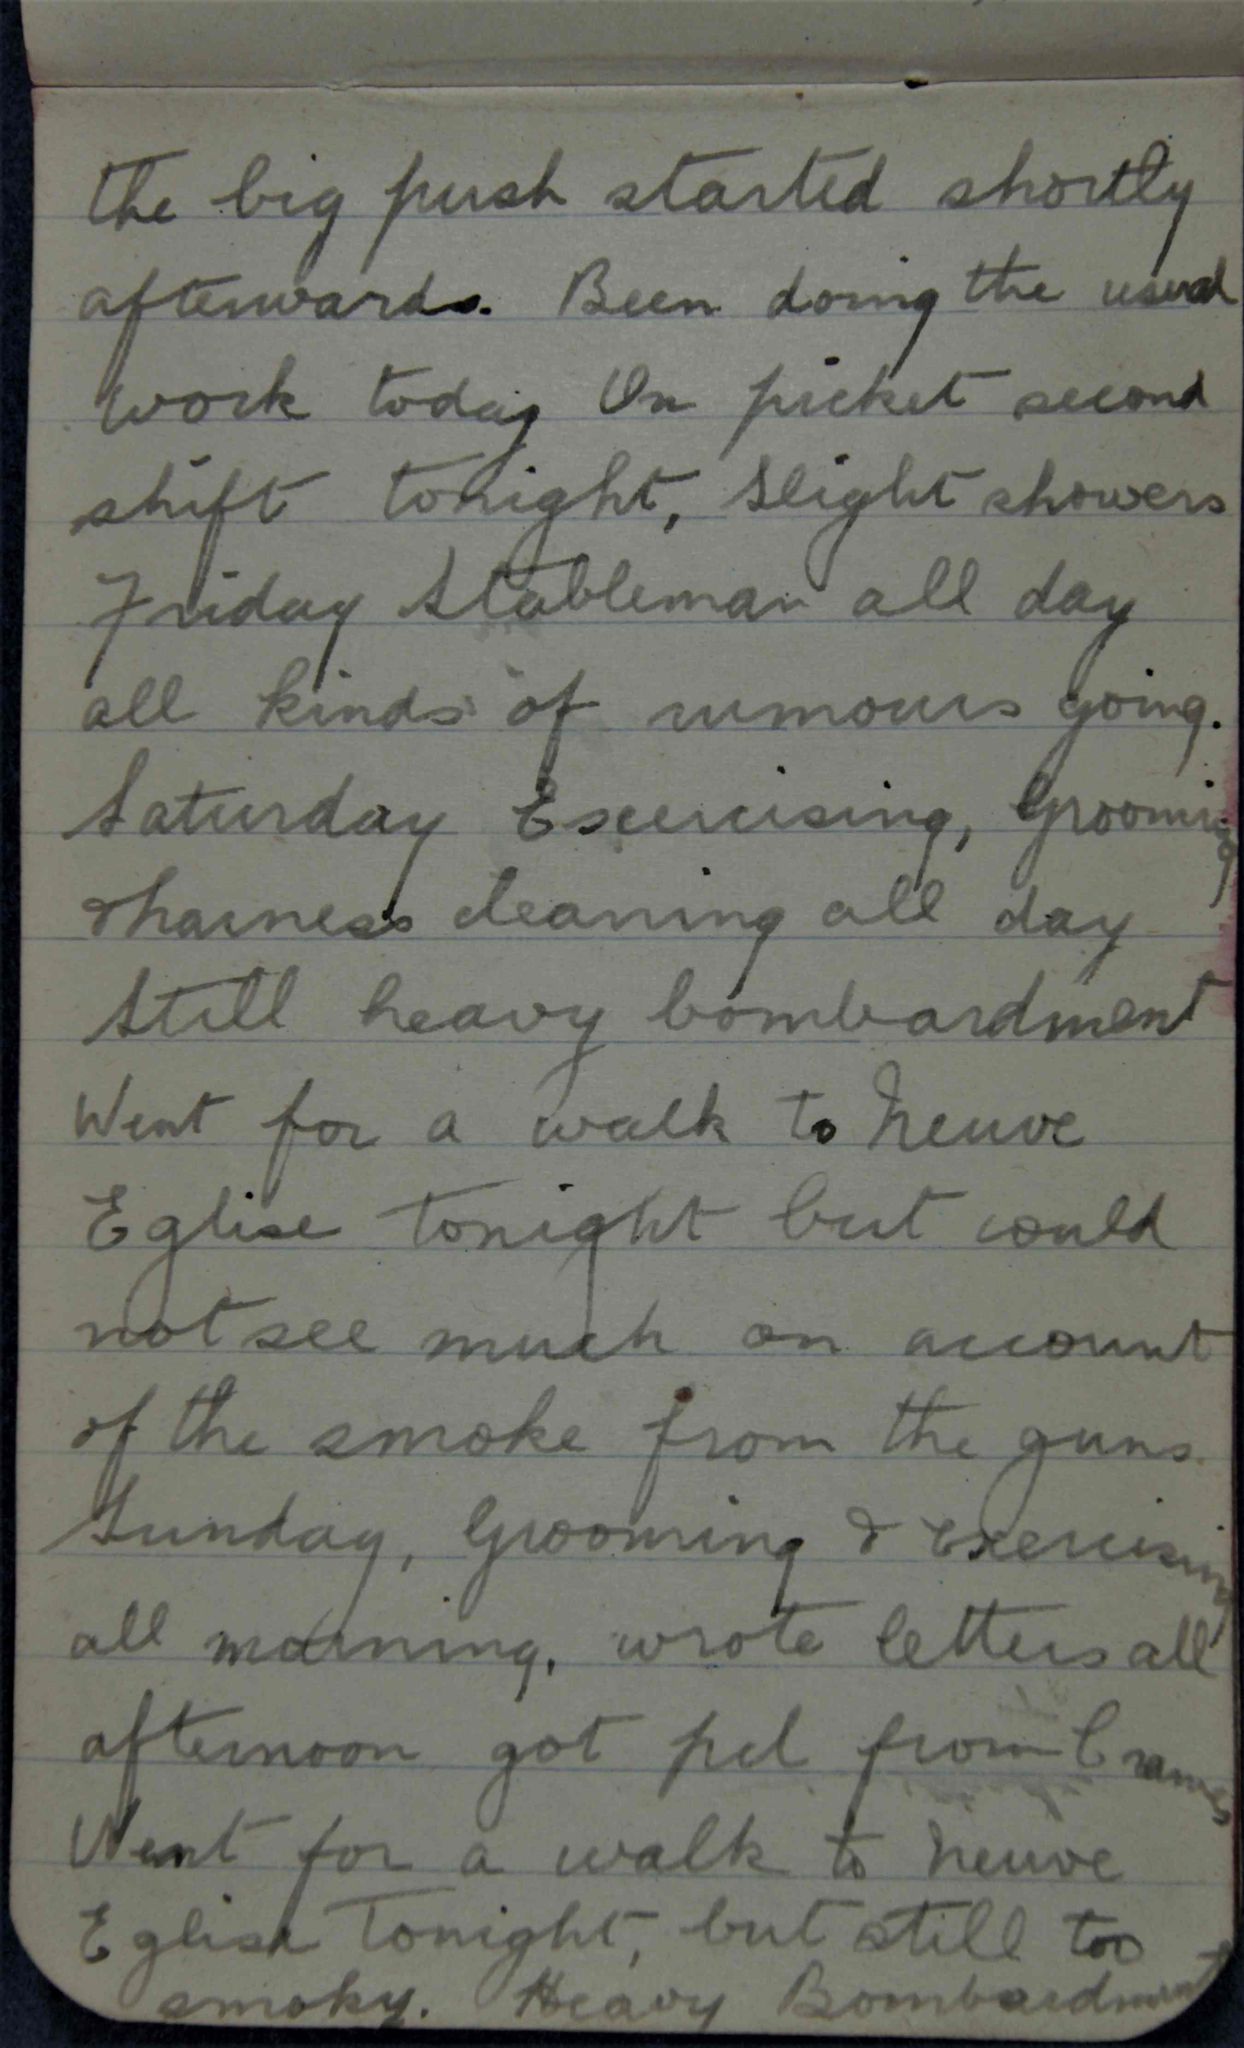 the big push started shortly
afterwards. Been doing the usual
work today On picket second
shift tonight, Slight showers
Friday Stableman all day
all kinds of rumours going.
Saturday Exercising, Grooming
& harness cleaning all day
Still heavy bombardment
Went for a walk to Neuve
Eglise tonight but could
not see much on account
of the smoke from the guns.
Sunday, Grooming & exercising
all morning, wrote letters all
afternoon got pcl from
Went for a walk to Neuve
Eglise Tonight, but still too
smoky. Heavy Bombardment